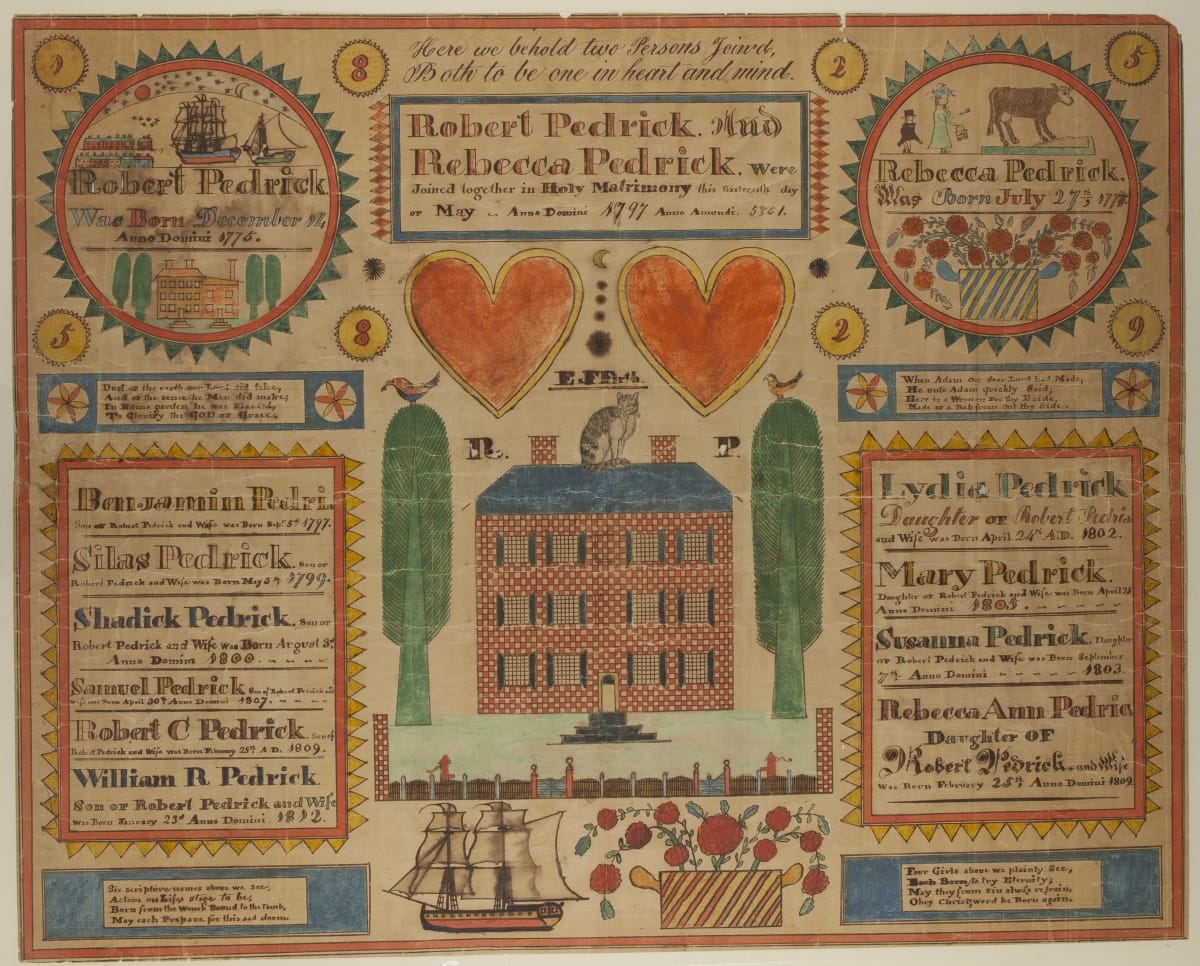 1
8
2
5
Here we behold two Persons Join'd,
Both to be one in heart and mind.
Robert Pedrick
Was Born December 14
Anno Domini 1775.
Robert Pedrick. And
Rebecca Pedrick. Were
Joined together in Holy Matrimony this Sixteenth day
of May Anno Domini 1797 Anno Amundi. 5801.
Rebecca Pedrick.
Was Born July 27th, 177
5
8
2
9
Dust of the earth our Lord did take,
And of the same he Man did make;
In Edens garden he was Placed,
To Glorify the GOD of Grace.
E.F.Firth.
When Adam Our dear Lord had Made;
He unto Adam quickly Said;
Here is a Woman for thy Bride,
Made of a Rib from Out thy Side.
R. P.
Benjamin Pedri
Son of Robert Pedrick and Wife was Born Sept. 5th 1797.
Silas Pedrick. Son of
Robert Pedrick and Wife was Born May 5th 1799.
Shadick Pedrick. Son of
Robert Pedrick and Wife was Born August 3d,
Anno Domini 1800.
Samuel Pedrick Son of Robert Pedrick and
Wife was Born April 30th Anno Domini 1807.
Robert C Pedrick. Son of
Robert Pedrick and Wife was Born February 25th A.D. 1809.
William R Pedrick.
Son of Robert Pedrick and Wife
was Born January 23d Anno Domini 1812.
Lydia Pedrick
Daughter OF Robert Pedric
and Wife was Born April 24th A.D. 1802.
Mary Pedrick.
Daughter of Robert Pedrick and Wife was Born April 28
Anno Domini 1805.
Susanna Pedrick. Daughter
of Robert Pedrick and Wife was Born September
7th Anno Domini 1803.
Rebecca Ann Pedric
Daughter OF
Robert Pedrick and Wife
was Born February 25th, Anno Domini 1809
Six scripture names above we see,
Actors on Lifes stage to be;
Born from the Womb Bound to the Tomb,
May each Prepare for this sad doom.
Four Girls above we plainly See,
Each Born to try Eternity;
May they from Sin always refrain,
Obey Christ word be Born again.